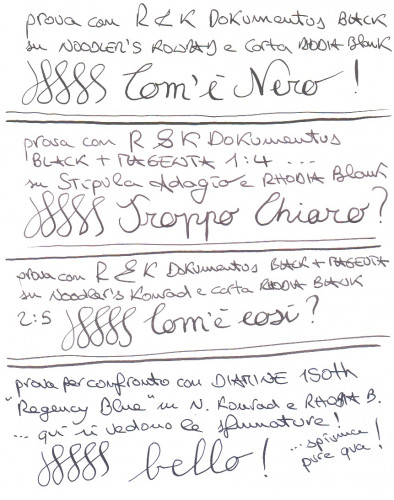 prova con R & K DOKUMENTUS BLACK
su NOODLER'S KONRAD e carta RHODIA Blank
Com'è Nero !
prova con R & K DOKUMENTUS
BLACK + MAGENTA 1:4 ...
su Stipula Adagio e RHODIA Blank
Troppo Chiaro?
prova con R & K DOKUMENTUS BLACK + MAGENTA
su Noodler's Konrad e carta RHODIA BLANK
2:5 Com'è così?
prova per confronto con DIAMINE 150th
"Regency Blue" su N. Konrad e RHODIA B.
... qui si vedono le sfumature!
bello! ... spiuma pure qua!